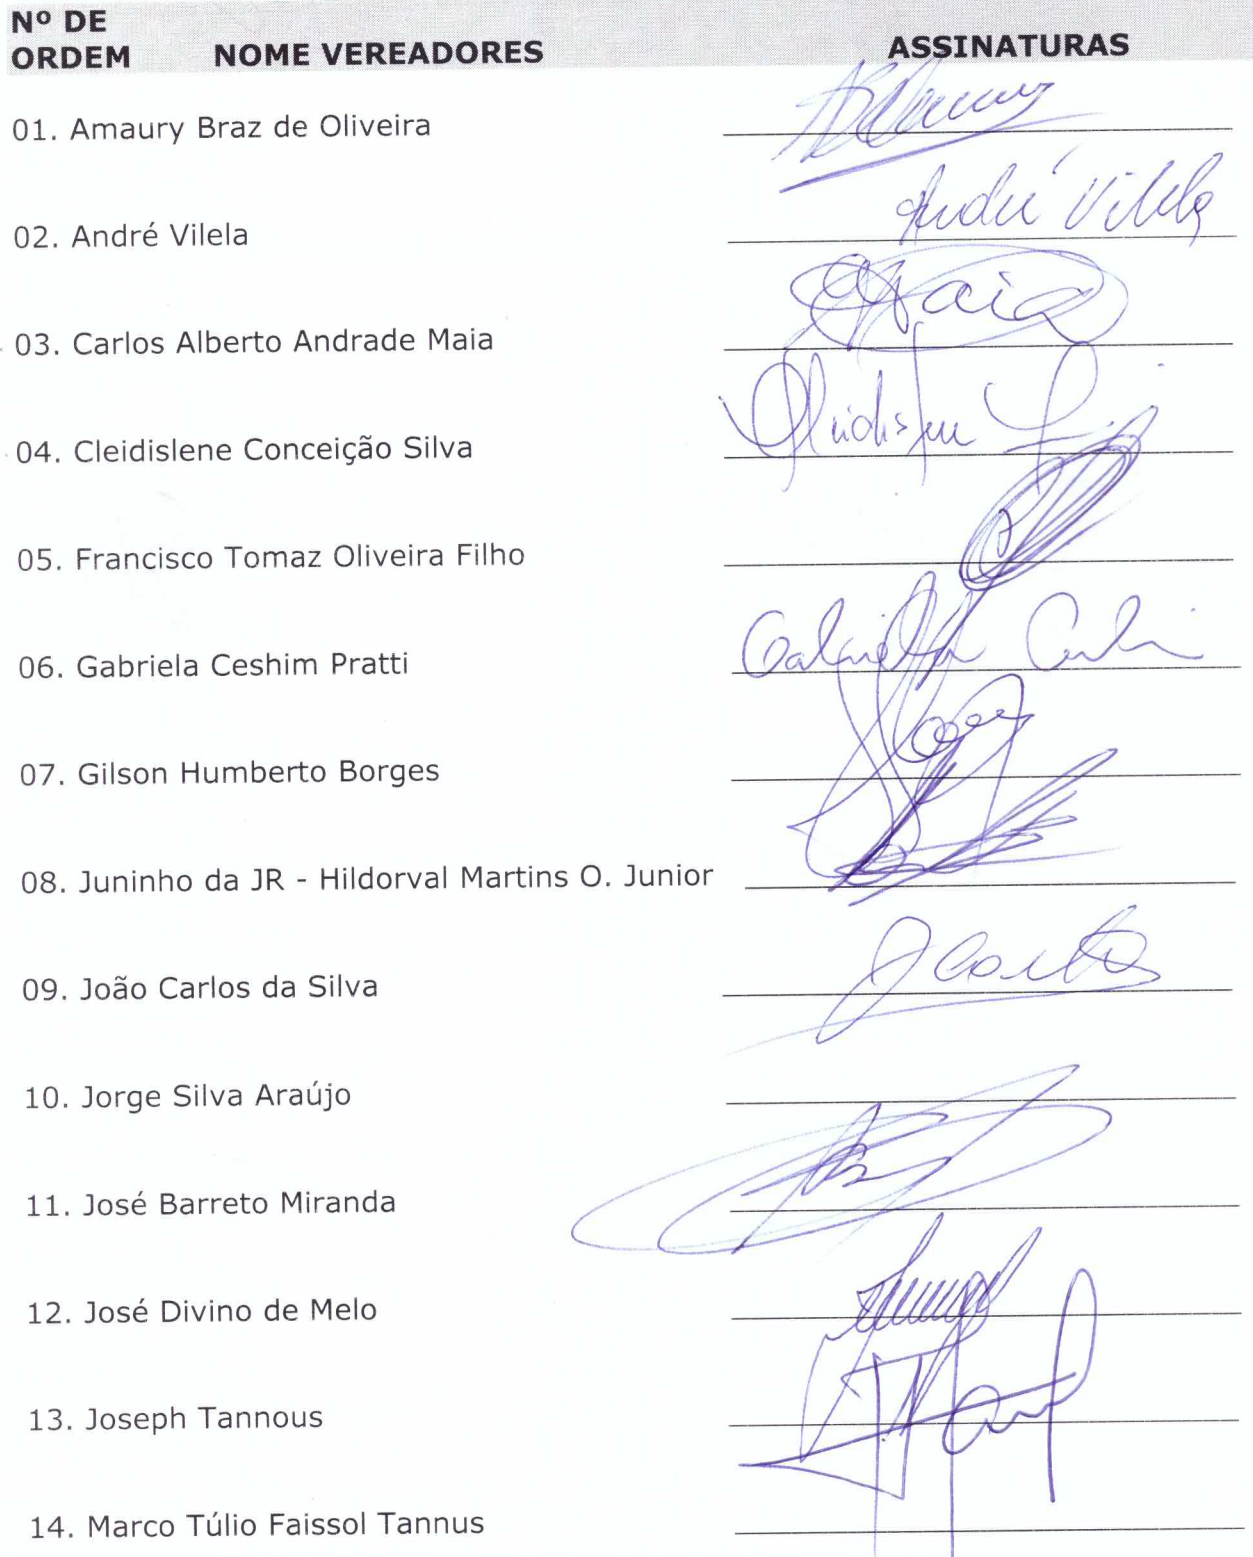 Nº DE
ORDEM NOME VEREADORES ASSINATURAS
01. Amaury Braz de Oliveira
02. André Vilela André Vilela
03. Carlos Alberto Andrade Maia Maia
04. Cleidislene Conceição Silva
05. Francisco Tomaz Oliveira Filho
06. Gabriela Ceshim Pratti
07. Gilson Humberto Borges
08. Juninho da JR - Hildorval Martins O. Junior
09. João Carlos da Silva
10. Jorge Silva Araújo
11. José Barreto Miranda
12. José Divino de Melo
13. Joseph Tannous
14. Marco Túlio Faissol Tannus